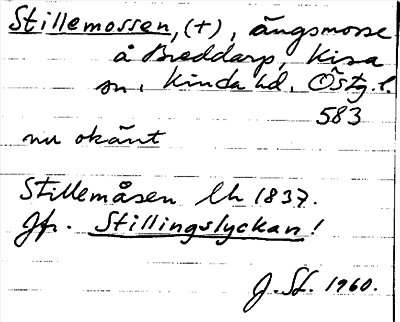 Stillemossen, (+), ängsmosse
å Breddarp, Kisa
sn. Kinda hd. Östg. l.
583
nu okänt
Stillemåsen lh 1837.
Jfr. Stillingslyckan!
J. St. 1960.